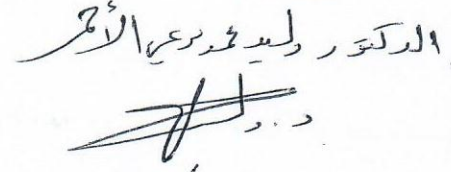 الدكتور وليد محمد مرعي الأحمر
د. وليد